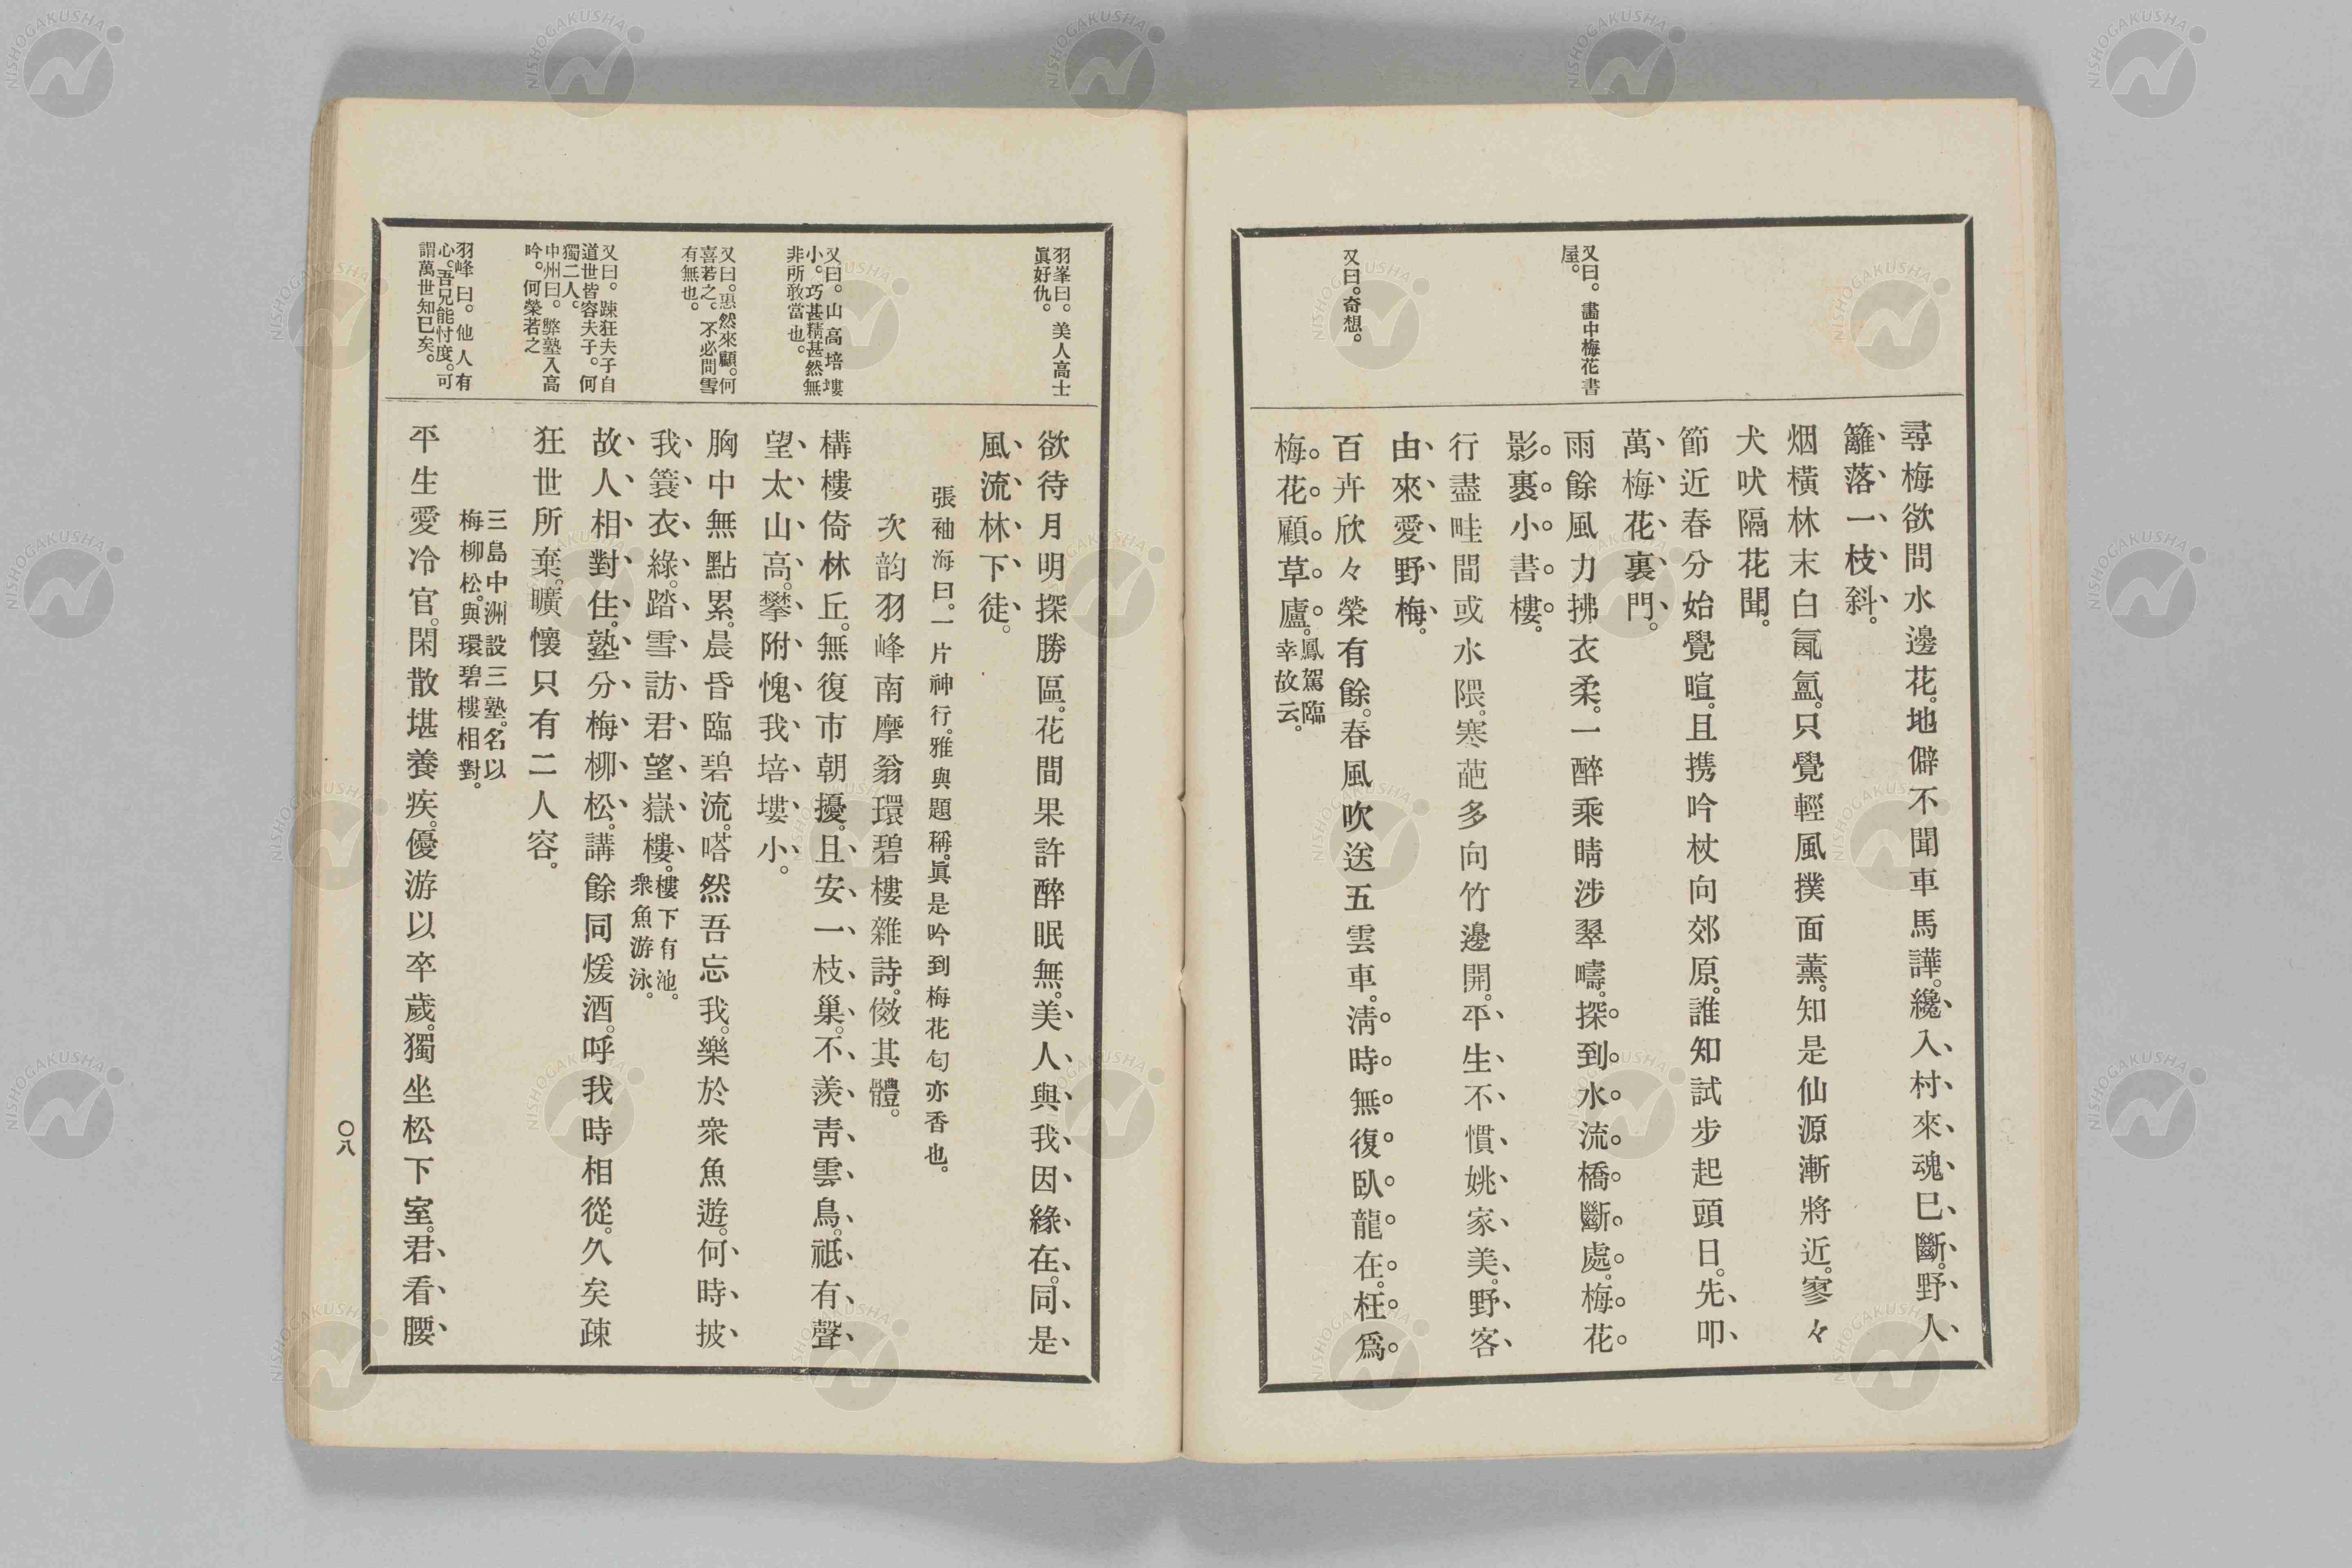 又曰。畵中梅花書
屋。
又曰。奇想。
尋梅欲問水邊花。地僻不聞車馬譁。纔入村來魂已斷。野人
籬落一枝斜。
烟橫林末白氤氳。只覺輕風撲面薰。知是仙源漸將近。寥々
犬吠隔花聞。
節近春分始覺暄。且携吟杖向郊原。誰知試步起頭日。先叩
萬梅花裏門。
雨餘風力拂衣柔。一醉乘晴涉翠疇。探到水流橋斷處。梅花
影裏小書樓。
行盡畦間或水隈。寒葩多向竹邊開。平生不慣姚家美。野客
由來愛野梅。
百卉欣々榮有餘。春風吹送五雲車。淸時無復臥龍在。枉爲
梅花顧草廬。鳳駕臨
幸故云。
羽峯曰。美人高士
眞好仇。
又曰。山高培塿
小。巧甚精甚然無
非所敢當也。
又曰。惠然來顧。何
喜若之。不必問雪
有無也。
又曰。踈狂夫子自
道世皆容夫子。何
獨二人。
中州曰。弊塾入高
吟。何榮若之
羽峰曰。他人有
心。吾兄能忖度。可
謂萬世知巳矣。
欲待月明探勝區。花間果許醉眠無。美人與我因緣在。同是
風流林下徒。
張袖海曰。一片神行。雅與題稱。眞是吟到梅花句亦香也。
次韵羽峰南摩翁環碧樓雜詩。傚其體。
構樓倚林丘。無復市朝擾。且安一枝巢。不羨靑雲鳥。祗有聲
望太山高。攀附愧我培塿小。
胸中無點累。晨昏臨碧流。嗒然吾忘我。樂於衆魚遊。何時披
我簑衣綠。踏雪訪君望嶽樓。樓下有池。
衆魚游泳。
故人相對住。塾分梅柳松。講餘同煖酒。呼我時相從。久矣疎
狂世所棄。曠懷只有二人容。
三島中洲設三塾。名以
梅柳松。與環碧樓相對。
平生愛冷官。閑散堪養疾。優游以卒歲。獨坐松下室。君看腰
〇八
NISHOGAKUSHA